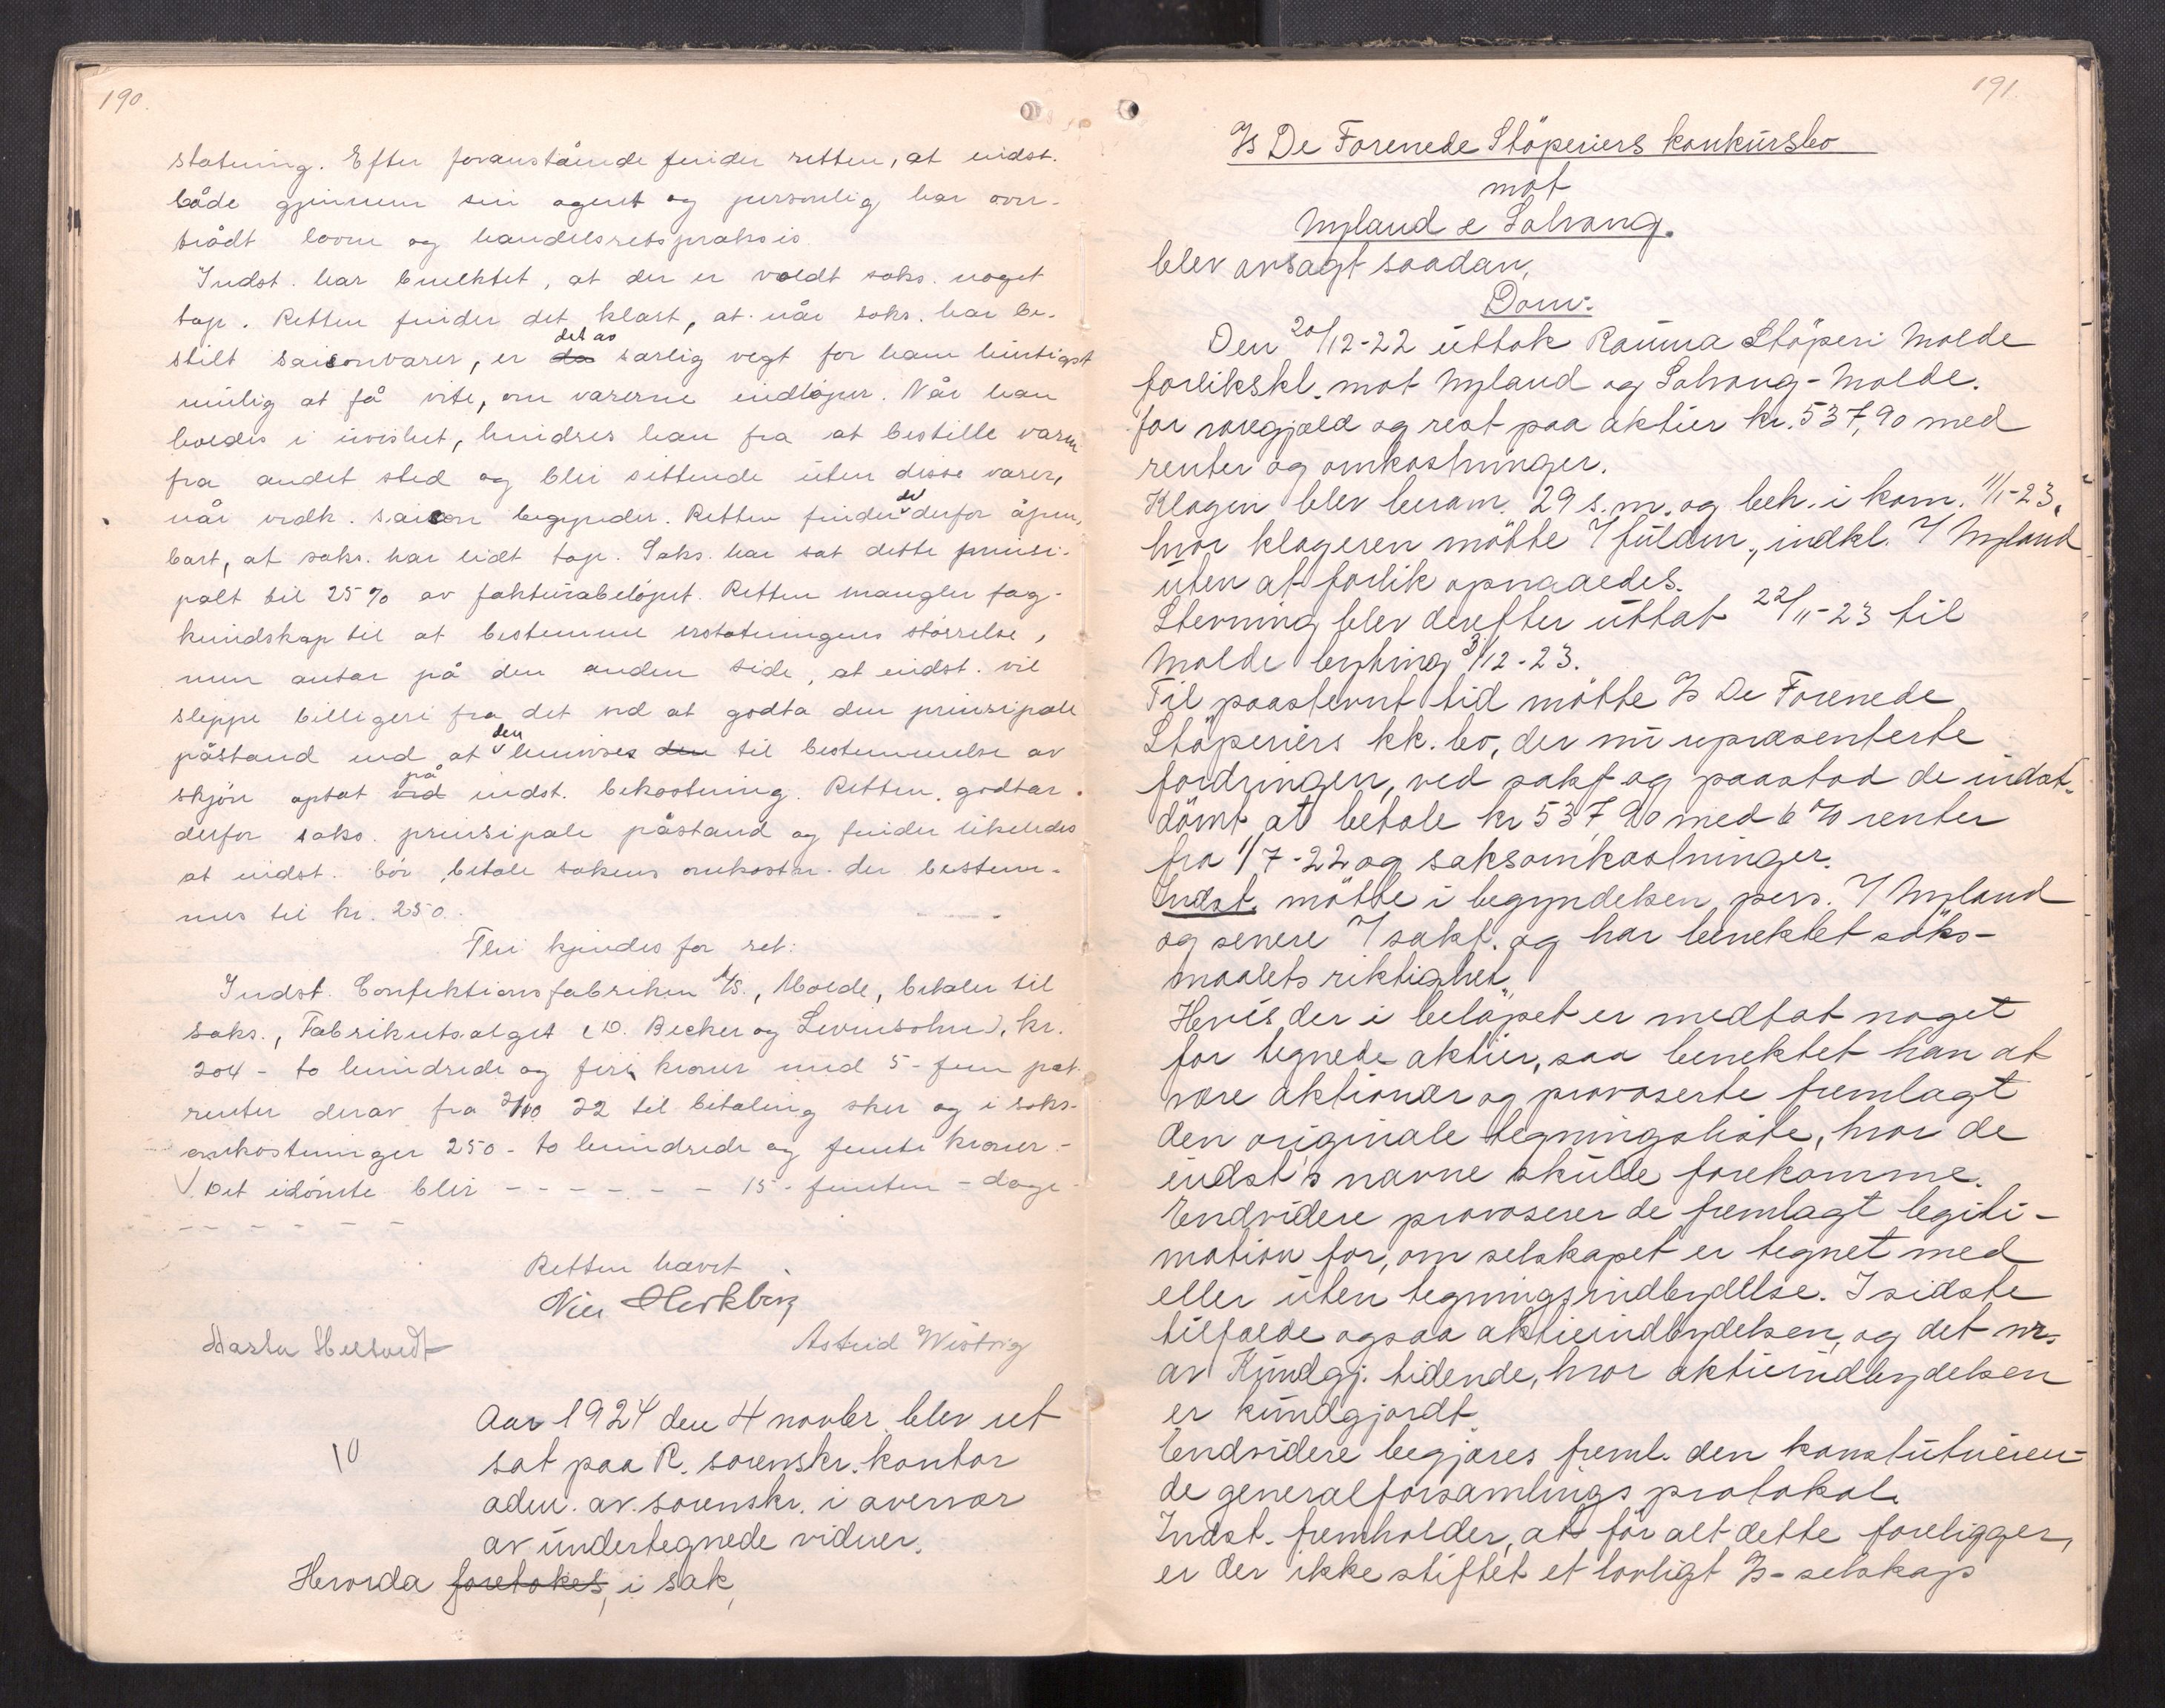 190.
statning. Efter foranstående finder retten, at indst.
både gjennem sin agent og personlig har over-
trådt loven og handelsretspraksis.
Indst. har benektet, at der er voldt saks. noget
tap. Retten finder det klart, at når saks. har be-
stilt saisonvarer, er det av særlig vegt for ham hurtigst
mulig at få vite, om varerne indløper. Når han
holdes i uvished, hindres han fra at bestille varer
fra andet sted og blir sittende uten disse varer,
når vedk. saison begynder. Retten finder det derfor åpen-
bart, at saks. har lidt tap. Saks. har sat dette prinsi-
palt til 25% av fakturabeløpet. Retten mangler fag-
kundskap til at bestemme erstatningens størrelse,
men antar på den anden side, at indst. vil
slippe billigere fra det ved at godta den prinsipale
påstand end at den henvises den til bestemmelse av
skjøn optat på ved indst. bekostning. Retten godtar
derfor saks. prinsipale påstand og finder likeledes
at indst. bør betale sakens omkostn. der bestem-
mes til kr. 250.
Thi kjendes for ret:
Indst. Confektionsfabriken A/S., Molde, betaler til
saks., Fabrikutsalget (D. Becker og Levinsohn), kr.
204 - to hundrede og fire kroner med 5 - fem pct.
renter derav fra 2/10 22 til betaling sker og i saks-
omkostninger 250 - to hundrede og femti kroner. -
Det idømte blir - - - - - - 15 - femten - dage -
- - - - - -
Retten hævet
Astrid
10
Aar 1924 den 4 novbr. blev ret
sat paa R. sorenskr. kontor
adm. av sorenskr. i overvær
av undertegnede vidner.
Hvorda foretokes, i sak,
191.
A/S De Forenede Stöperiers konkursbo
mot
Nyland & Solvang.
blev avsagt saadan,
Dom:
Den 20/12-22 uttok Rauma Stöperi Molde
forlikskl. mot Nyland og Solvang - Molde.
for varegjæld og rest paa aktier kr. 537,90 med
renter og omkostninger.
Klagen blev beram. 29 s.m. og beh. i kom. 11/1-23,
hvor klageren mötte v/ fuldm., indkl. v/ Nyland
uten at forlik opnaaedes.
Stevning blev derefter uttat 22/11-23 til
Molde byting 3/12-23.
Til paastevnt tid mötte A/S De Forenede
Stöperiers kk. bo, der nu repræsenterte
fordringen, ved sakf. og paastod de indst.
dömt at betale kr 537,90 med 6 % renter
fra 1/7-22 og saksomkostninger.
Indst. mötte i begyndelsen pers. v/ Nyland
og senere v/ sakf. og har benektet söks-
maalets riktighet.
Hvis der i belöpet er medtat noget
for tegnede aktier, saa benektet han at
være aktionær og provoserte fremlagt
den originale tegningsliste, hvor de
indst's navne skulle forekomme.
Endvidere provoserer de fremlagt legiti-
mation for, om selskapet er tegnet med
eller uten tegningsindbydelse. I sidste
tilfælde ogsaa aktieindbydelsen, og det nr.
av Kundgj. tidende, hvor aktieindbydelsen
er kundgjordt.
Endvidere begjæres freml. den konstitueren-
de generalforsamlings protokol.
Indst. fremholder, at för alt dette foreligger,
er der ikke stiftet et lovligt A/S-selskap